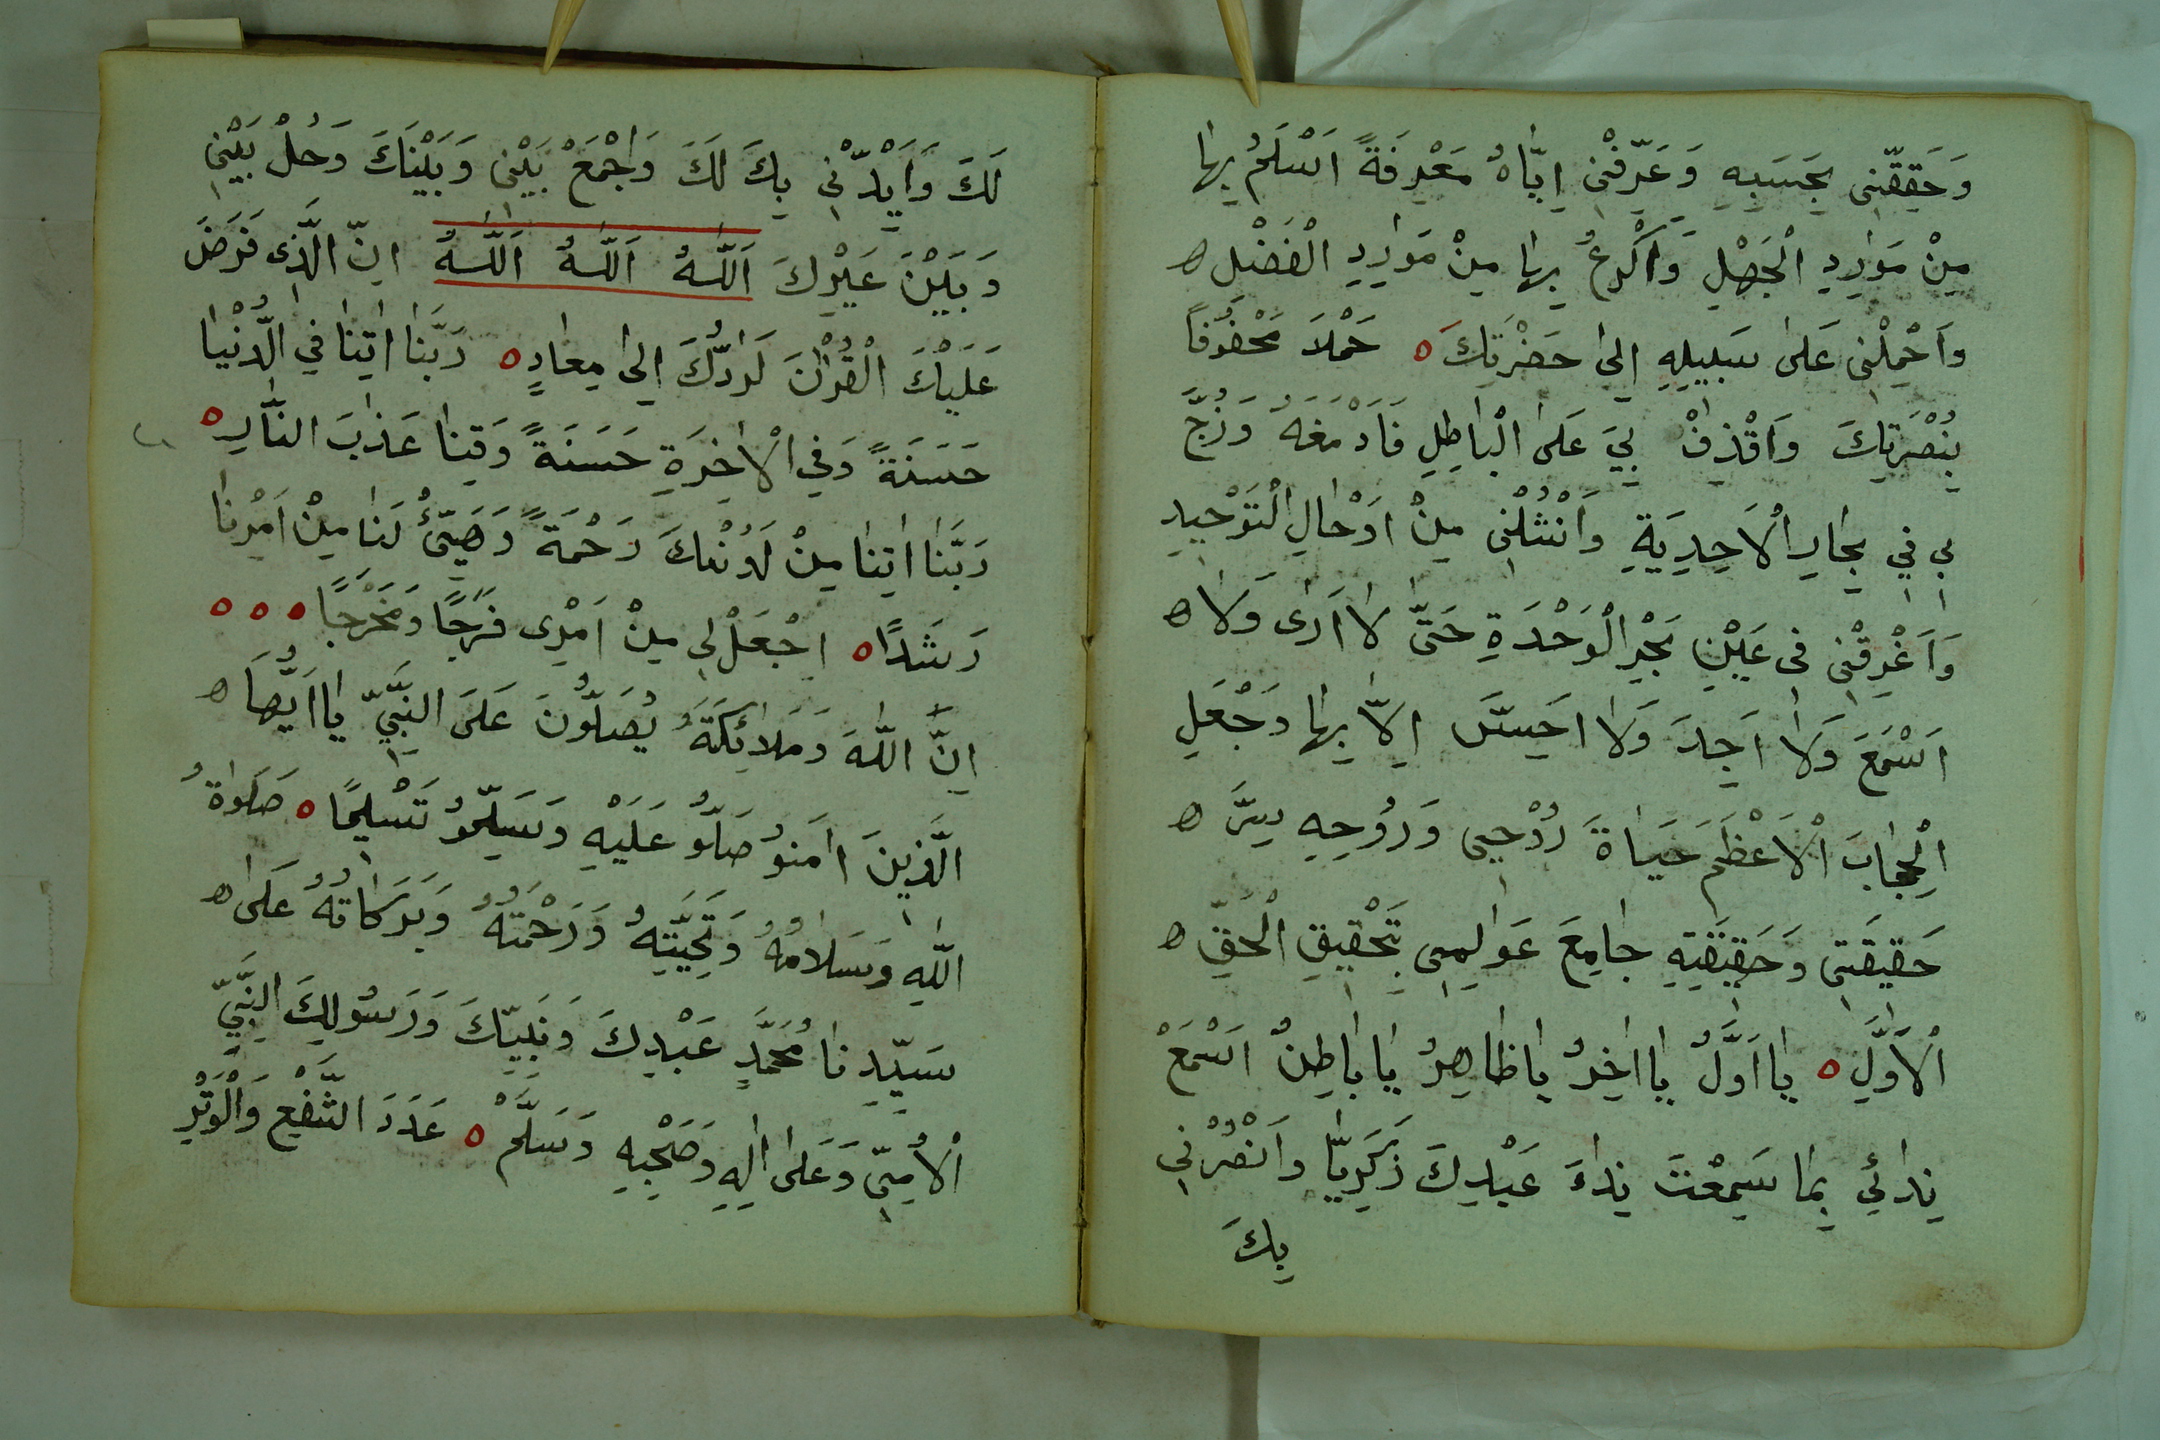 وَحَقِّقْنِي بِحَسَبِهِ وَعَرِّفْنِي اِيَّاهُ مَعْرِفَةً اَسْلَمُ بِهَا
مِنْ مَوَارِدِ الْجَهْلِ وَاَكْرَعُ بِهَا مِنْ مَوَارِدِ الْفَضْلِ ه
وَاَحْمِلْنِي عَلَى سَبِيلِهِ اِلَى حَضْرَتِكَ ه حَمْلًا مَحْفُوفًا
بِنُصْرَتِكَ وَاقْذِفْ بِيَ عَلَى الْبَاطِلِ فَاَدْمَغَهُ وَزُجَّ
بِي فِي بِحَارِ الْاَحَدِيَةِ وَانْشُلْنِي مِنْ اَوْحَالِ التَوْحِيدِ
وَاَغْرِقْنِي فِي عَيْنِ بَحْرِ الْوَحْدَةِ حَتَّى لَا اَرَى وَلَا ه
اَسْمَعَ وَلَا اَجِدَ وَلَا اَحِسَّ اِلَّا بِهَا وَجْعَلِ
الْحِجَابَ الْاَعْظَمَ حَيَاةَ رُوْحِي وَرُوحِهِ سِرَّ ه
حَقِيقَتِي وَحَقِيقَتِهِ جَامِعَ عَوَالِمِي بِتَحْقِيقِ الْحَقِّ ه
الْاَوَّلِ ه يَا اَوَّلُ يَا اَخِرُ يَا ظَاهِرُ يَا بَاطِنُ اَسْمَعْ
نِدَائِي بِمَا سَمِعْتَ نِدَاءَ عَبْدِكَ زَكَرِيَّا وَانْصُرْنِي
بِكَ
لَكَ وَاَيِّدْنِي بِكَ لَكَ وَاجْمَعْ بَيْنِي وَبَيْنَكَ وَحُلْ بَيْنِي
وَبَيْنَ غَيْرِكَ اَللّٰهُ اَللّٰهُ اَللّٰهُ اِنَّ الَّذِي فَرَضَ
عَلَيْكَ الْقُرْاٰنَ لَرَادُّكَ اِلَى مِعَادٍ ه رَبَّنَا اٰتِنَا فِي الدُّنْيَا
حَسَنَةً وَفِي الْاٰخِرَةِ حَسَنَةً وَقِنَا عَذَابَ النَّارِ ه
رَبَّنَا اٰتِنَا مِنْ لَدُنْكَ رَحْمَةً وَهَيِّئْ لَنَا مِنْ اَمْرِنَا
رَشَدًا ه اِجْعَلْ لِي مِنْ اَمْرِي فَرَجًا وَمَخْرَجًا ه ه ه
اِنَّ اللّٰهَ وَمَلَائِكَتَهُ يُصَلُّونَ عَلَى النَّبِيِّ يَا اَيُّهَا ه
الَّذِينَ اٰمَنُو صَلُّو عَلَيْهِ وَسَلِّمُو تَسْلِيمًا ه صَلَوٰاةُ
اللّٰهِ وَسَلَامُهُ وَتَحِيَّتِهُ وَرَحْمَتُهُ وَبَرَكَاتُهُ عَلَى ه
سَيِّدِنَا مُحَمَّدٍ عَبْدِكَ وَنَبِيِّكَ وَرَسُولِكَ النَّبِيِّ
الْاُمِّيِّ وَعَلَى اٰلِهِ وَصَحْبِهِ وَسَلَّمْ ه عَدَدَ الشَّفْعِ وَالْوَتْرِ